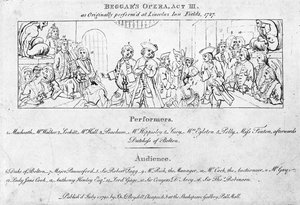 BEGGAR'S OPERA, ACT III.
as Originally perform'd at Lincolns Inn Fields, 1727.
Performers.
1 Macheath, Mr Walker 2 Lockitt, Mr Hall 3 Peachum, Mr Hippisley 4 Lucy, Mrs Egleton 5 Polly, Miss Fenton, afterwards
Dutchess of Bolton.
Audience.
6 Duke of Bolton. 7 Major Pauncefoord. 8 Sir Robert Fagg. 9 Mr Rich, the Manager. 10 Mr Cock, the Auctioneer. 11 Mr Gay.
12 Lady Jane Cook. 13 Anthony Henley Esqr. 14 Lord Gage. 15 Sir Conyers D'Arcy. 16 Sir Thos Robinson.
Publish'd July 1790 by J. & J. Boydell, Cheapside, & at the Shakspeare Gallery, Pall Mall.